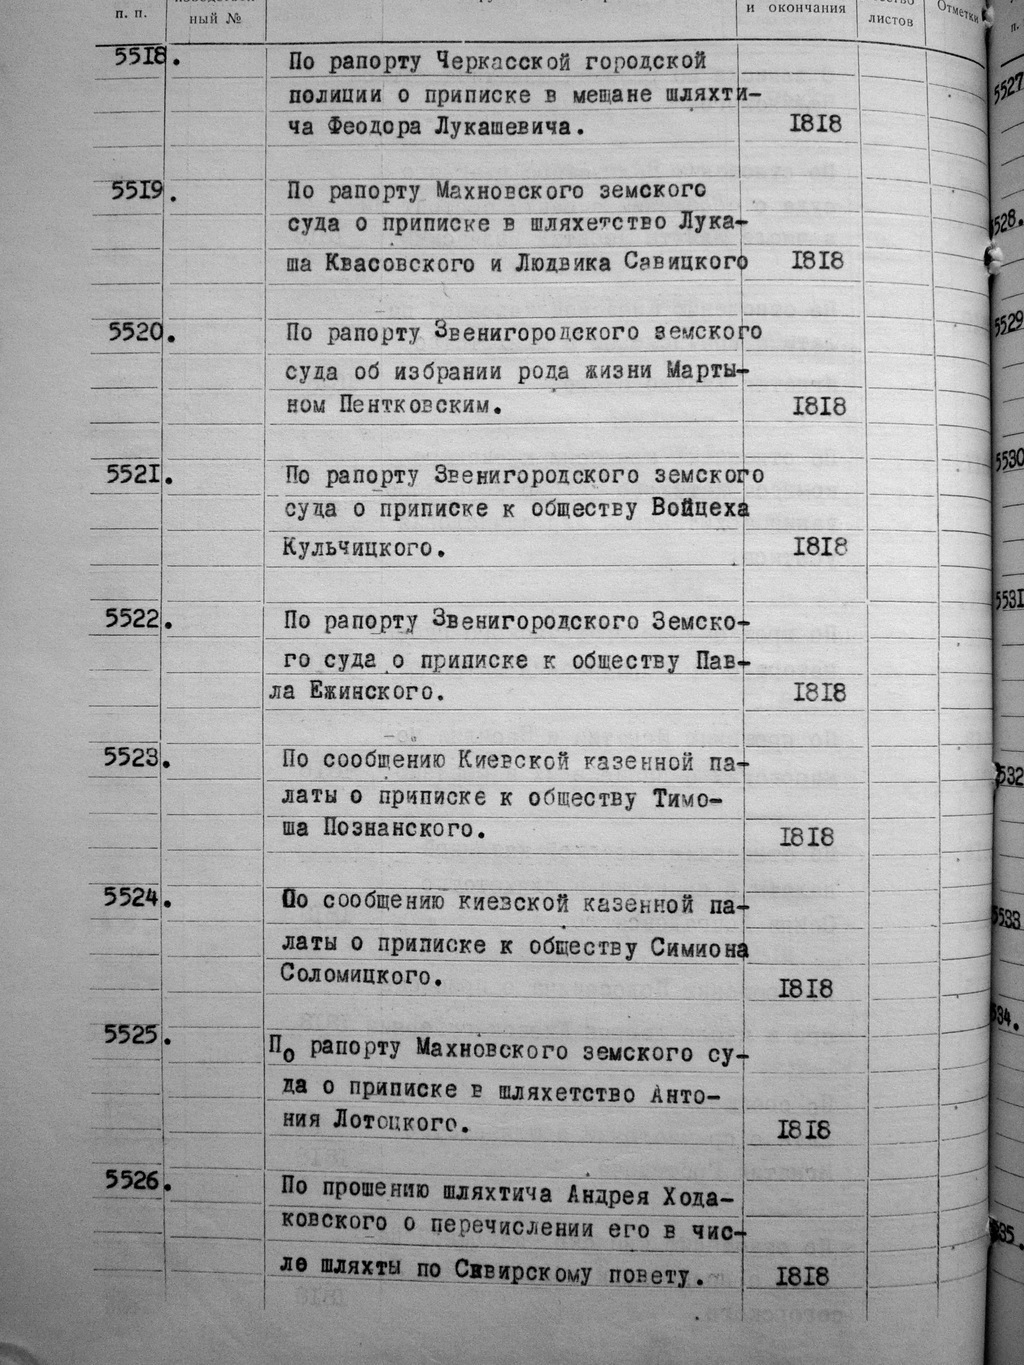 п. п.
ный №
и окончания
листов
Отметки
п.
5518.
По рапорту Черкасской городской
полиции о приписке в мещане шляхти-
ча Феодора Лукашевича.
1818
5519.
По рапорту Махновского земского
суда о приписке в шляхетство Лука-
ша Квасовского и Людвика Савицкого
1818
5520.
По рапорту Звенигородского земского
суда об избрании рода жизни Марты-
ном Пентковским.
1818
5521.
По рапорту Звенигородского земского
суда о приписке к обществу Войцеха
Кульчицкого.
1818
5522.
По рапорту Звенигородского Земско-
го суда о приписке к обществу Пав-
ла Ежинского.
1818
5523.
По сообщению Киевской казенной па-
латы о приписке к обществу Тимо-
ша Познанского.
1818
5524.
По сообщению киевской казенной па-
латы о приписке к обществу Симиона
Соломицкого.
1818
5525.
По рапорту Махновского земского су-
да о приписке в шляхетство Анто-
ния Лотоцкого.
1818
5526.
По прошению шляхтича Андрея Хода-
ковского о перечислении его в чис-
ле шляхты по Сквирскому повету.
1818
5527
528.
5529
5530
5531
532
533
534.
535.